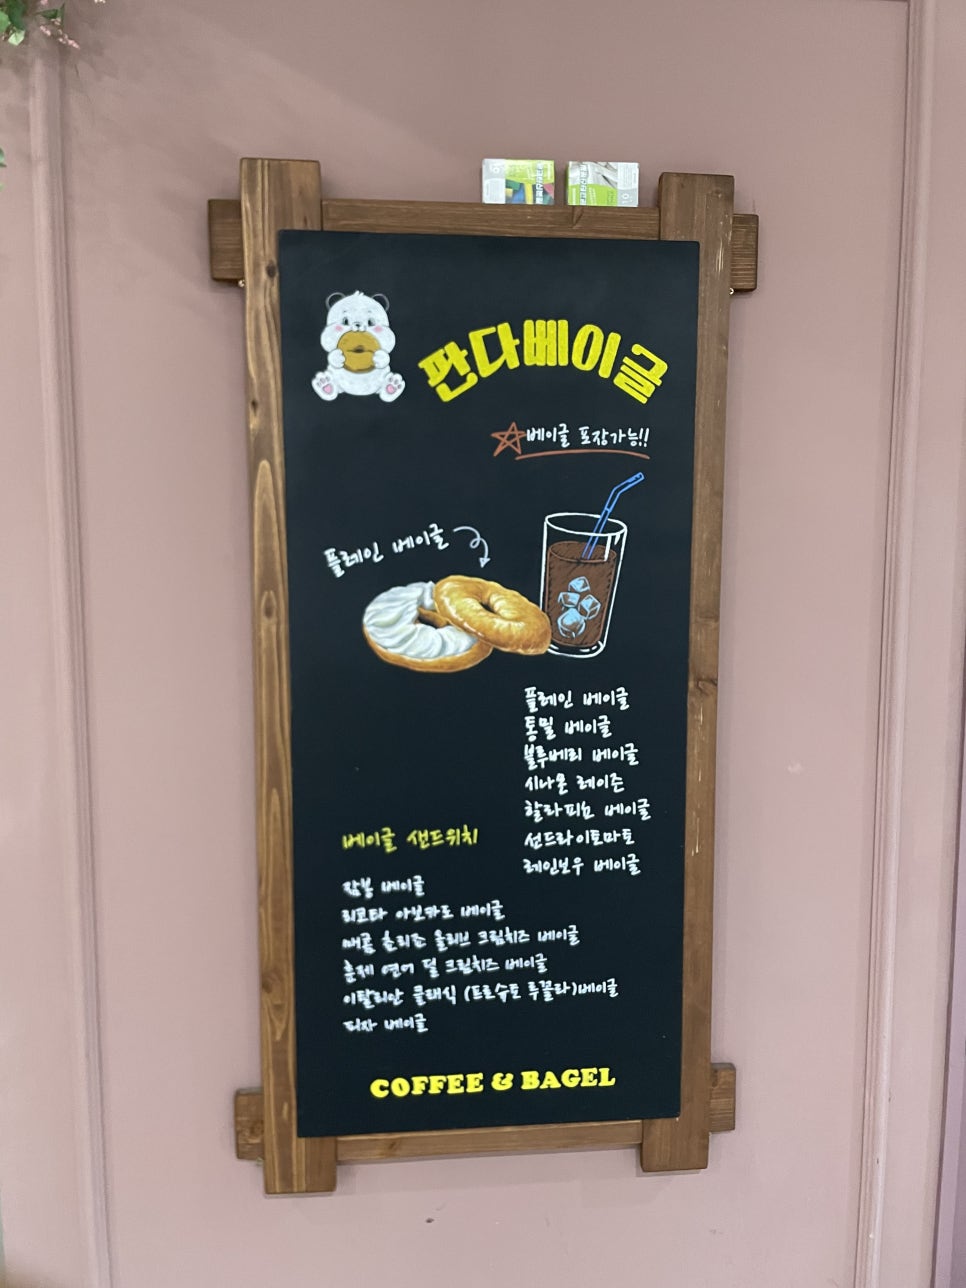 판다베이글
베이글 포장가능!!
플레인 베이글
플레인 베이글
통밀 베이글
블루베리 베이글
시나몬 레이즌
할라피뇨 베이글
선드라이토마토
레인보우 베이글
베이글 샌드위치
잠봉 베이글
리코타 아보카도 베이글
매콤 초리죠 올리브 크림치즈 베이글
훈제 연어 딜 크림치즈 베이글
이탈리안 클래식 (프로슈토 루꼴라)베이글
피자 베이글
COFFEE & BAGEL